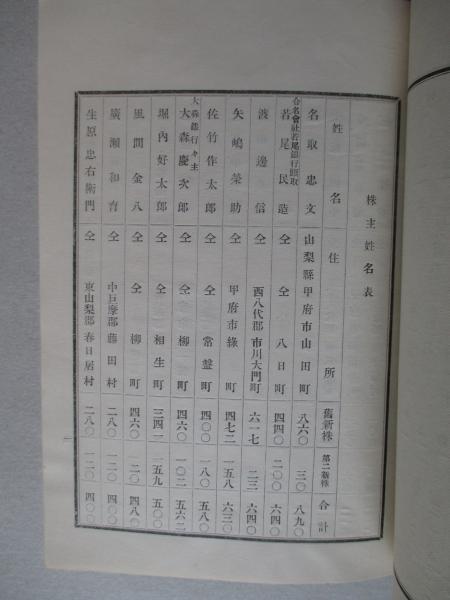 株主姓名表
姓名 住所 舊新株 第二新株 合計
名取忠文 山梨縣甲府市山田町 八六〇 三〇 八九〇
合名會社若尾銀行頭取
若尾民造 仝 仝 八日町 四四〇 二〇〇 六四〇
渡邊信 仝 西八代郡市川大門町 六一七 二三 六四〇
矢嶋榮助 仝 甲府市綠町 四七二 一五八 六三〇
佐竹作太郎 仝 仝 常盤町 四〇〇 一八〇 五八〇
大森銀行々主
大森慶次郎 仝 仝 柳町 四六〇 一〇二 五六二
堀內好太郎 仝 仝 相生町 三四一 一五九 五〇〇
風間金八 仝 仝 柳町 四六〇 二〇 四八〇
廣瀨和育 仝 中巨摩郡藤田村 二八〇 一二〇 四〇〇
生原忠右衞門 仝 東山梨郡春日居村 二八〇 一二〇 四〇〇